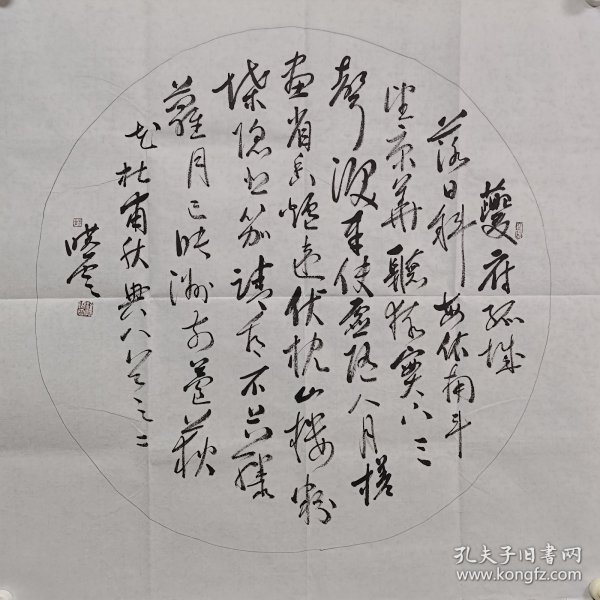 夔府孤城
落日斜每依南斗
望京華聽猿實下三
聲淚奉使虛隨八月槎
畫省香爐違伏枕山樓粉
堞隐悲笳請看石上藤
蘿月已映洲前蘆荻
花杜甫秋興八首之二
孔夫子旧书网
www.kongfz.com